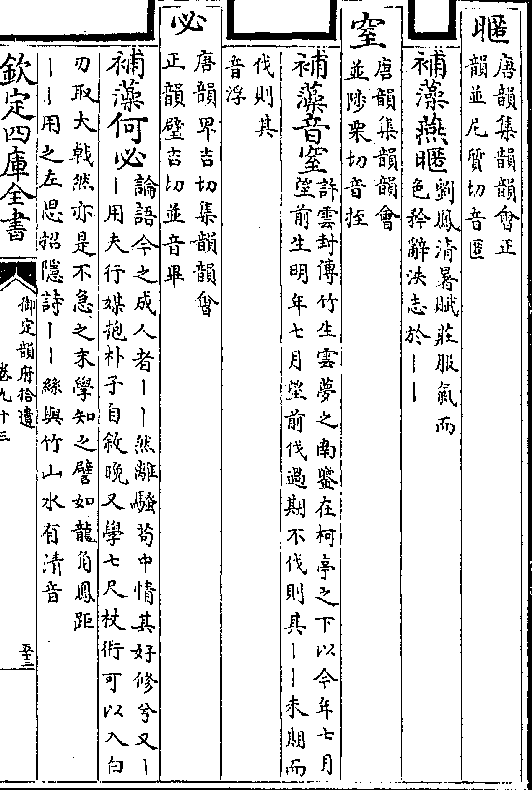 暱
唐韻集韻韻會正
韻並尼質切音匿
補藻燕暱
劉鳳清暑賦莊服氣而
色矜辭泆志於丨丨
窒
唐韻集韻韻會
並陟栗切音挃
補藻音窒
許雲封傳竹生雲夢之南鑒在柯亭之下以今年七月
望前生明年七月望前伐過期不伐則其丨丨未期而
伐則其
音浮
必
唐韻卑吉切集韻韻會
正韻壁吉切並音畢
補藻何必
論語今之成人者丨丨然離騷苟中情其好修兮又丨
丨用夫行媒抱朴子自敘晚又學七尺杖術可以入白
刃取大戟然亦是不急之末學知之譬如龍角鳳距
丨丨用之左思招隱詩丨丨絲與竹山水有清音
欽定四庫全書
御定韻府拾遺
卷九十三